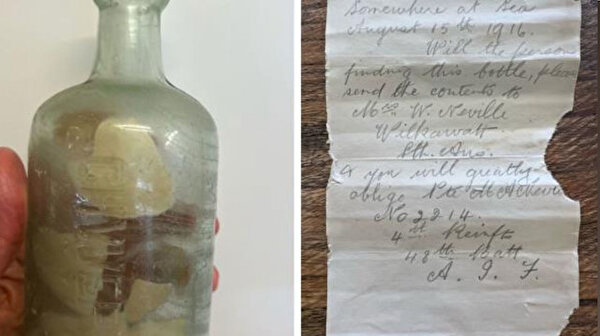 Somewhere at Sea
August 15th 1916.
Will the person
finding this bottle, please
send the contents to
Mrs W. Neville
Wilkawatt
Sth. Aus.
& you will greatly
oblige Pte M A Nevill
No 2814.
4th Reinft
48th Batt
A. I. F.